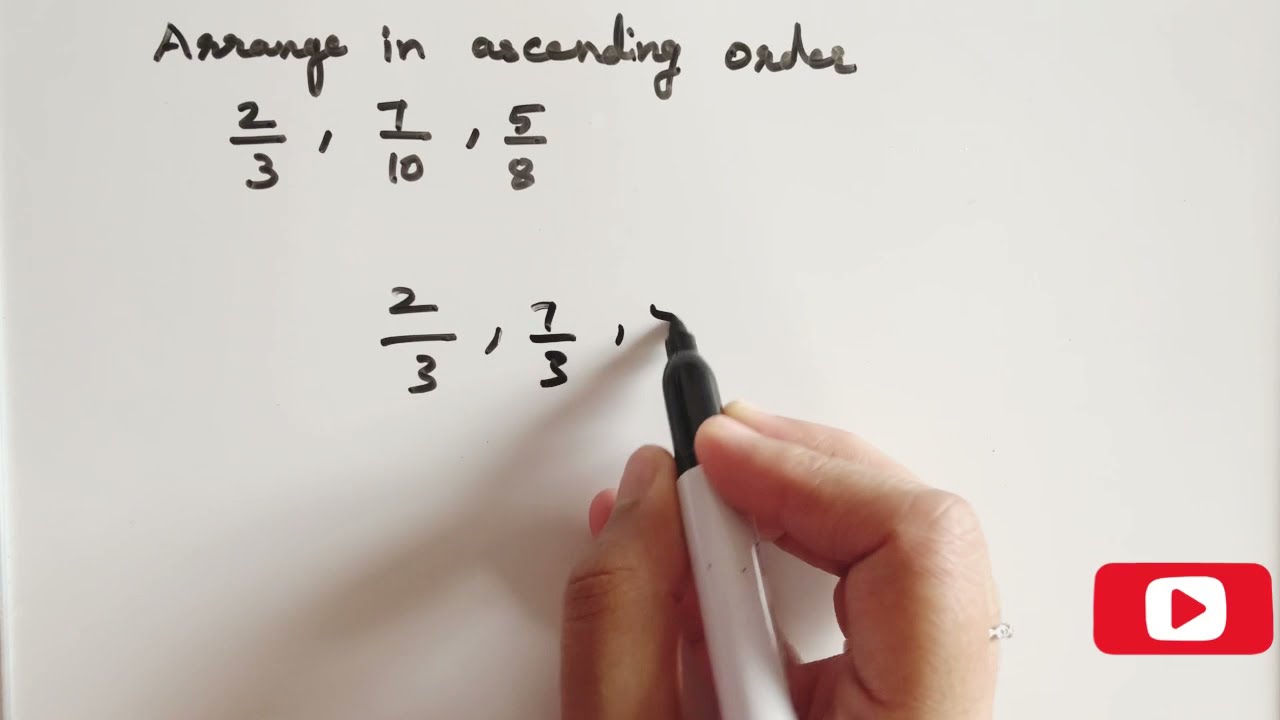 Arrange in ascending order
2/3 , 7/10 , 5/8
2/3 , 7/3 ,